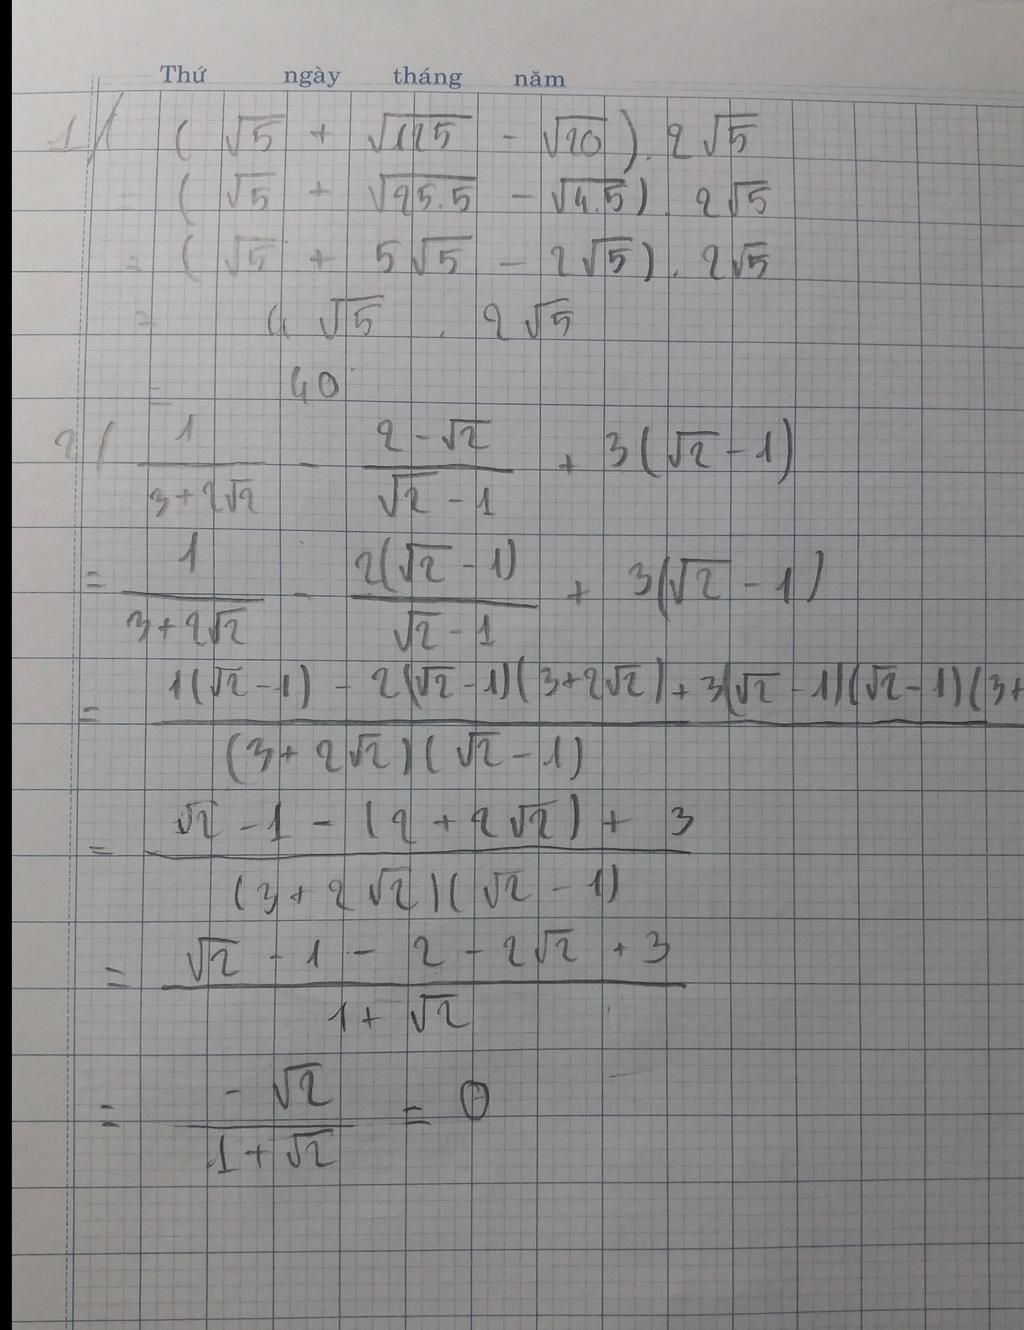 Thứ ngày tháng năm
1/ (√5 + √125 - √20). 2√5
= (√5 + √25.5 - √4.5) 2√5
= (√5 + 5√5 - 2√5). 2√5
= 4√5 . 2√5
= 40
2/ 1/(3+2√2) - (2-√2)/(√2-1) + 3(√2-1)
= 1/(3+2√2) - 2(√2-1)/(√2-1) + 3(√2-1)
= (1(√2-1) - 2(√2-1)(3+2√2) + 3(√2-1)(√2-1)(3+)/((3+2√2)(√2-1))
= (√2-1-(2+2√2)+3)/((3+2√2)(√2-1))
= (√2-1-2-2√2+3)/(1+√2)
= -√2/(1+√2) = 0